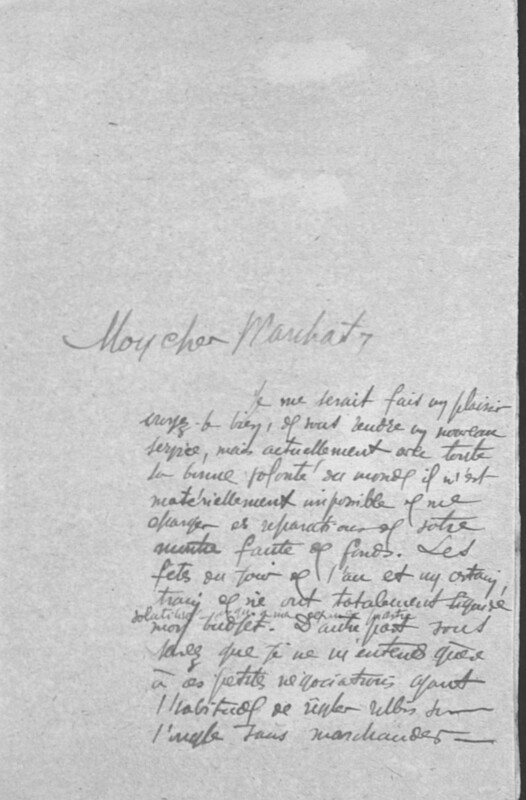 Mon cher Marchat,
Je me serait fais un plaisir
croyez le bien, de vous rendre un nouveau
service, mais actuellement avec toute
la bonne volonté du monde il m'est
matériellement impossible de me
charger des réparations de votre
montre faute de fonds. Les
fêtes du jour de l'an et un certain
train de vie ont totalement liquidé
mon budget. D'autre part vous
savez que je ne m'entends guère
à ces petites négociations ayant
l'habitude de régler rubis sur
l'ongle sans marchander